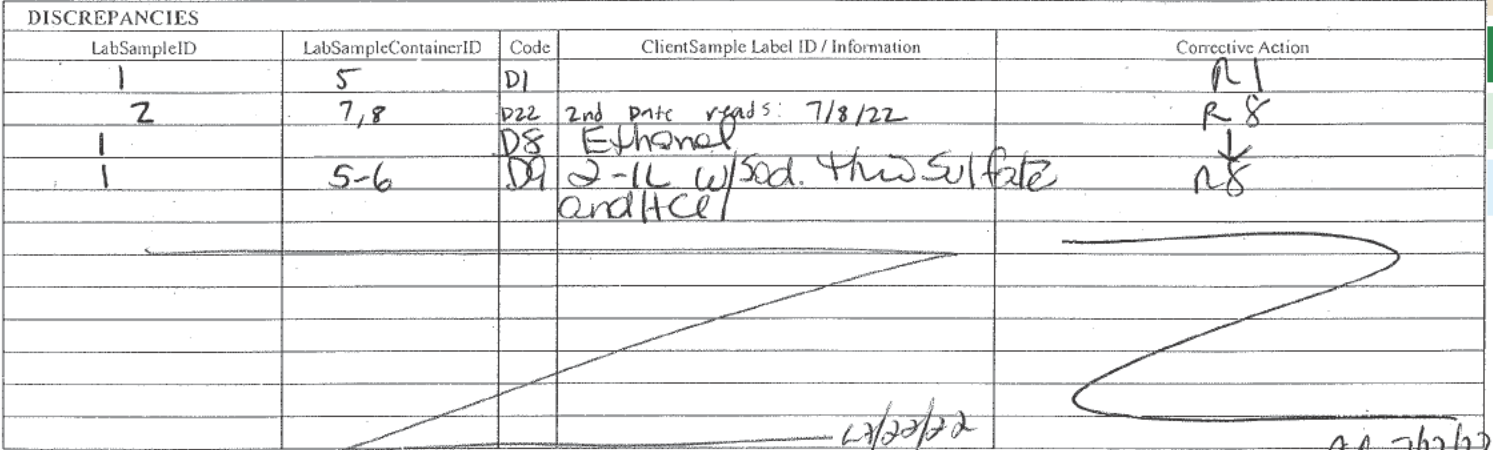 DISCREPANCIES
LabSampleID LabSampleContainerID Code ClientSample Label ID / Information Corrective Action
1 5 D1 R1
2 7,8 D22 2nd Date reads: 7/8/22 R 8
1 D8 Ethanol ↓
1 5-6 D9 2-1L w/Sod. thiosulfate R8
and HCl